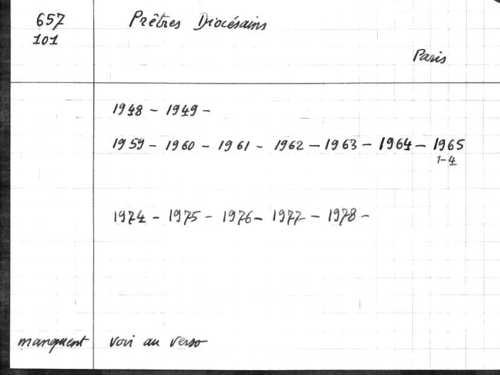 657 Prêtres Diocésains
101
Paris
1948 - 1949 -
1959 - 1960 - 1961 - 1962 - 1963 - 1964 - 1965
1-4
1974 - 1975 - 1976 - 1977 - 1978 -
manquent voir au verso